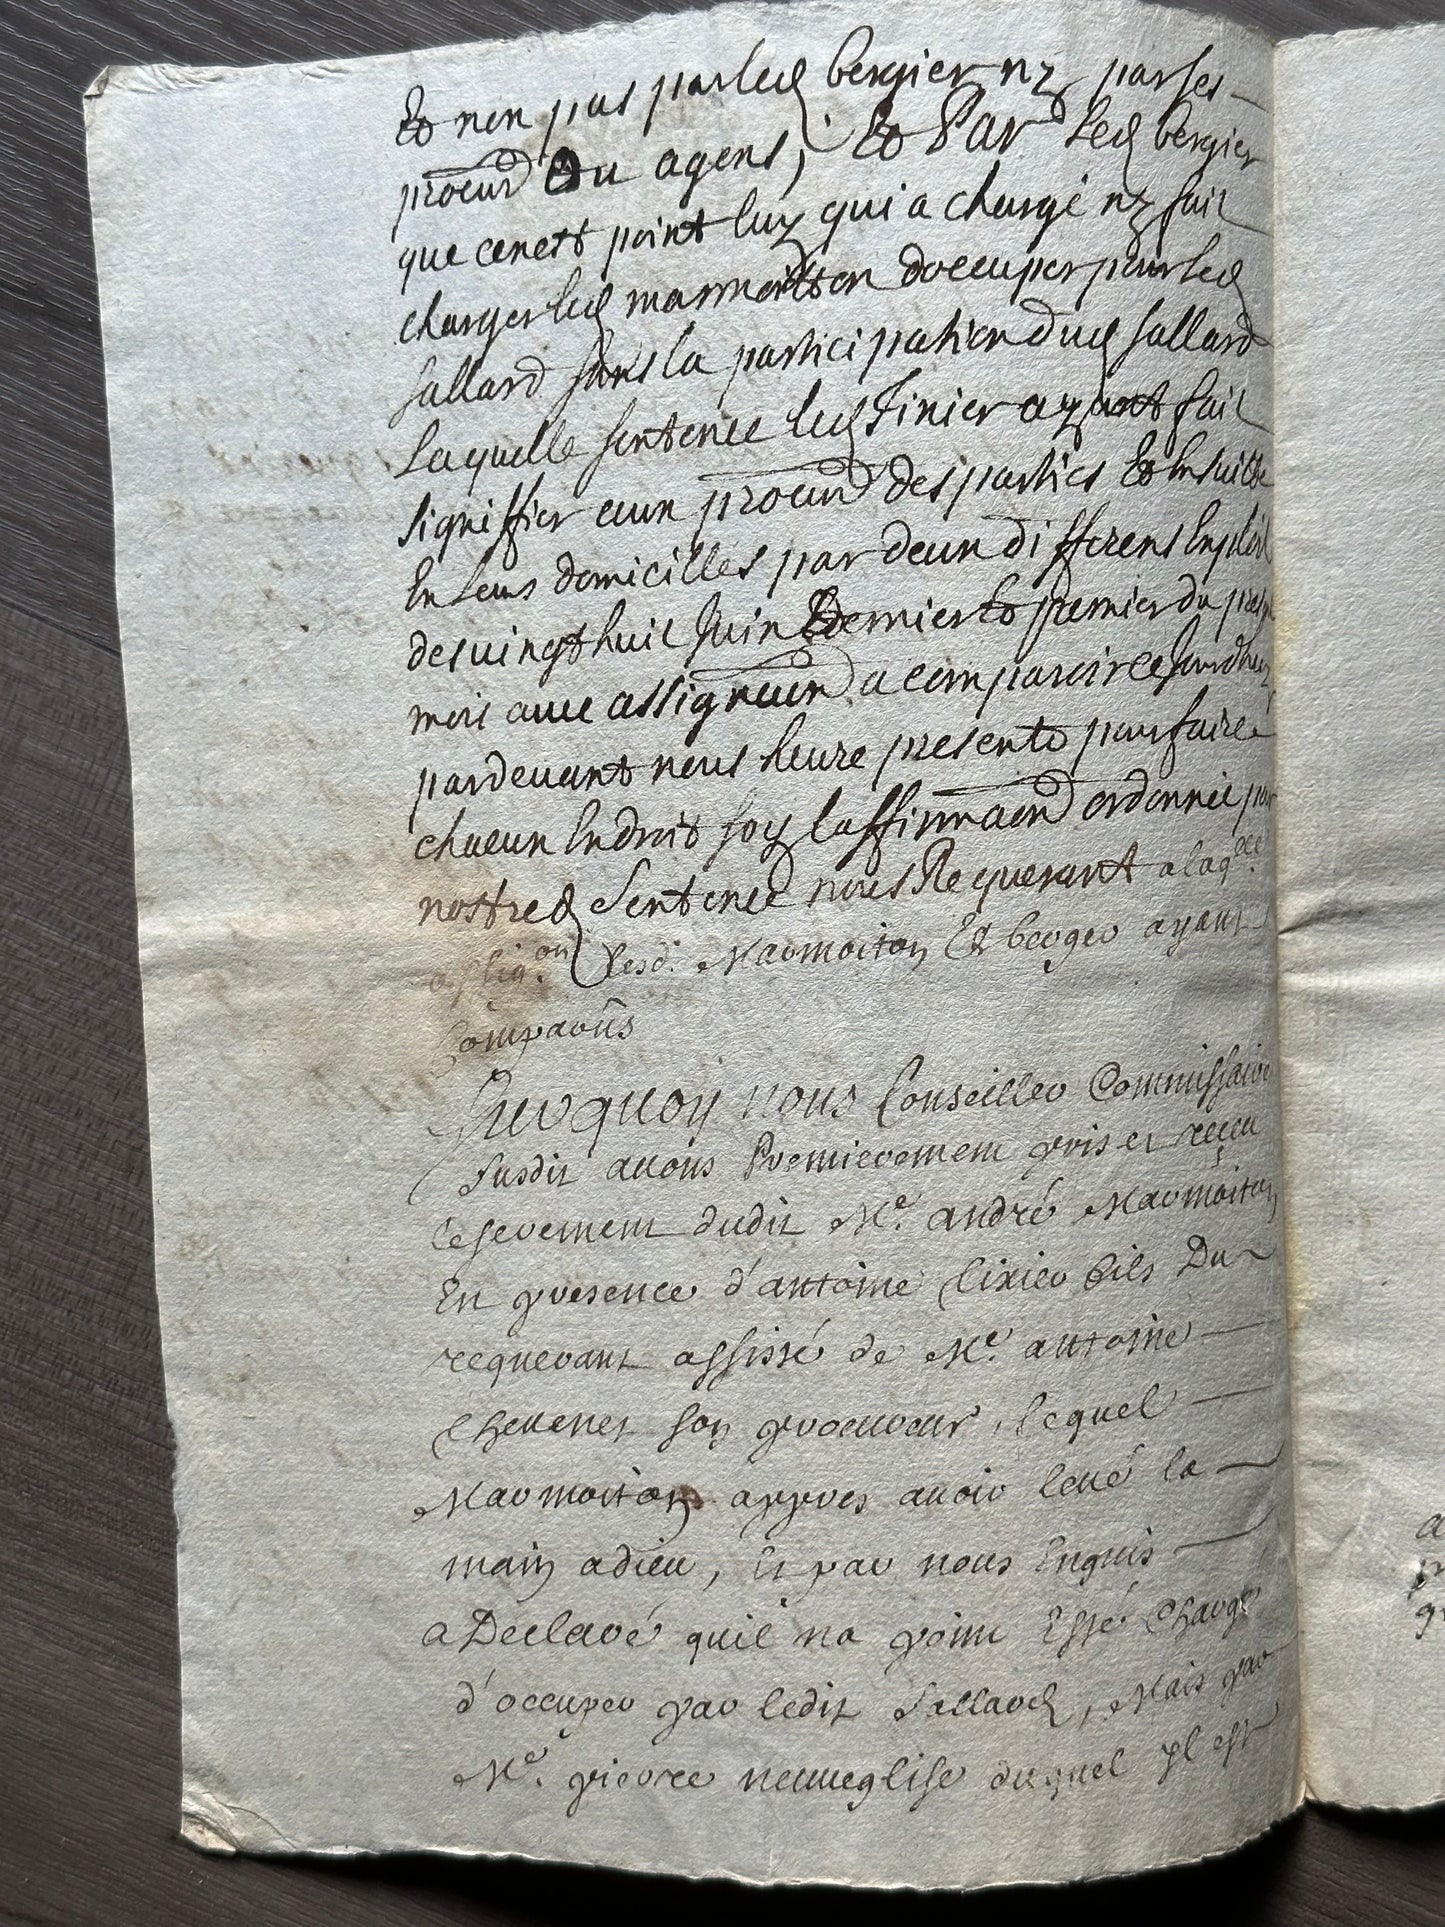 Et non pas par led bergier ny par ses
procur ou agens, Et Par led bergier
que cenest point luy qui a chargé ny fait
charger led marmoitton doccuper pour led
sallard sans la participation dud sallard
Laquelle sentence led Tixier ayant fait
signiffier aux procur des parties Et Ensuitte
En leurs domicilles par deux differens Exploit
des vingt huit Juin dernier Et premier du presnt
mois avec assignaon a comparoir ce Jourdhuy
pardevant nous heure presente pour faire
chacun Endroit soy laffirmaon ordonnée par
nostred sentence nous Requerant alaqlle
assig.on lesd. Marmoiton Et berger ayant
Comparûs
Surquoy nous Conseiller Commissaire
susdit avons Premierement pris et reçeu
le serement dudit Me. andré Marmoiton
En presence d'antoine tixier fils Du
requerant assisté de Me. antoine
Chevenet son procureur, lequel
Marmoiton appres avoir levé la
main adieu, Et par nous Enquis
a Declaré quil na point Esté Chargé
d'occuper par ledit Sallard, Mais par
Me. pierre neuveglise duquel Il est